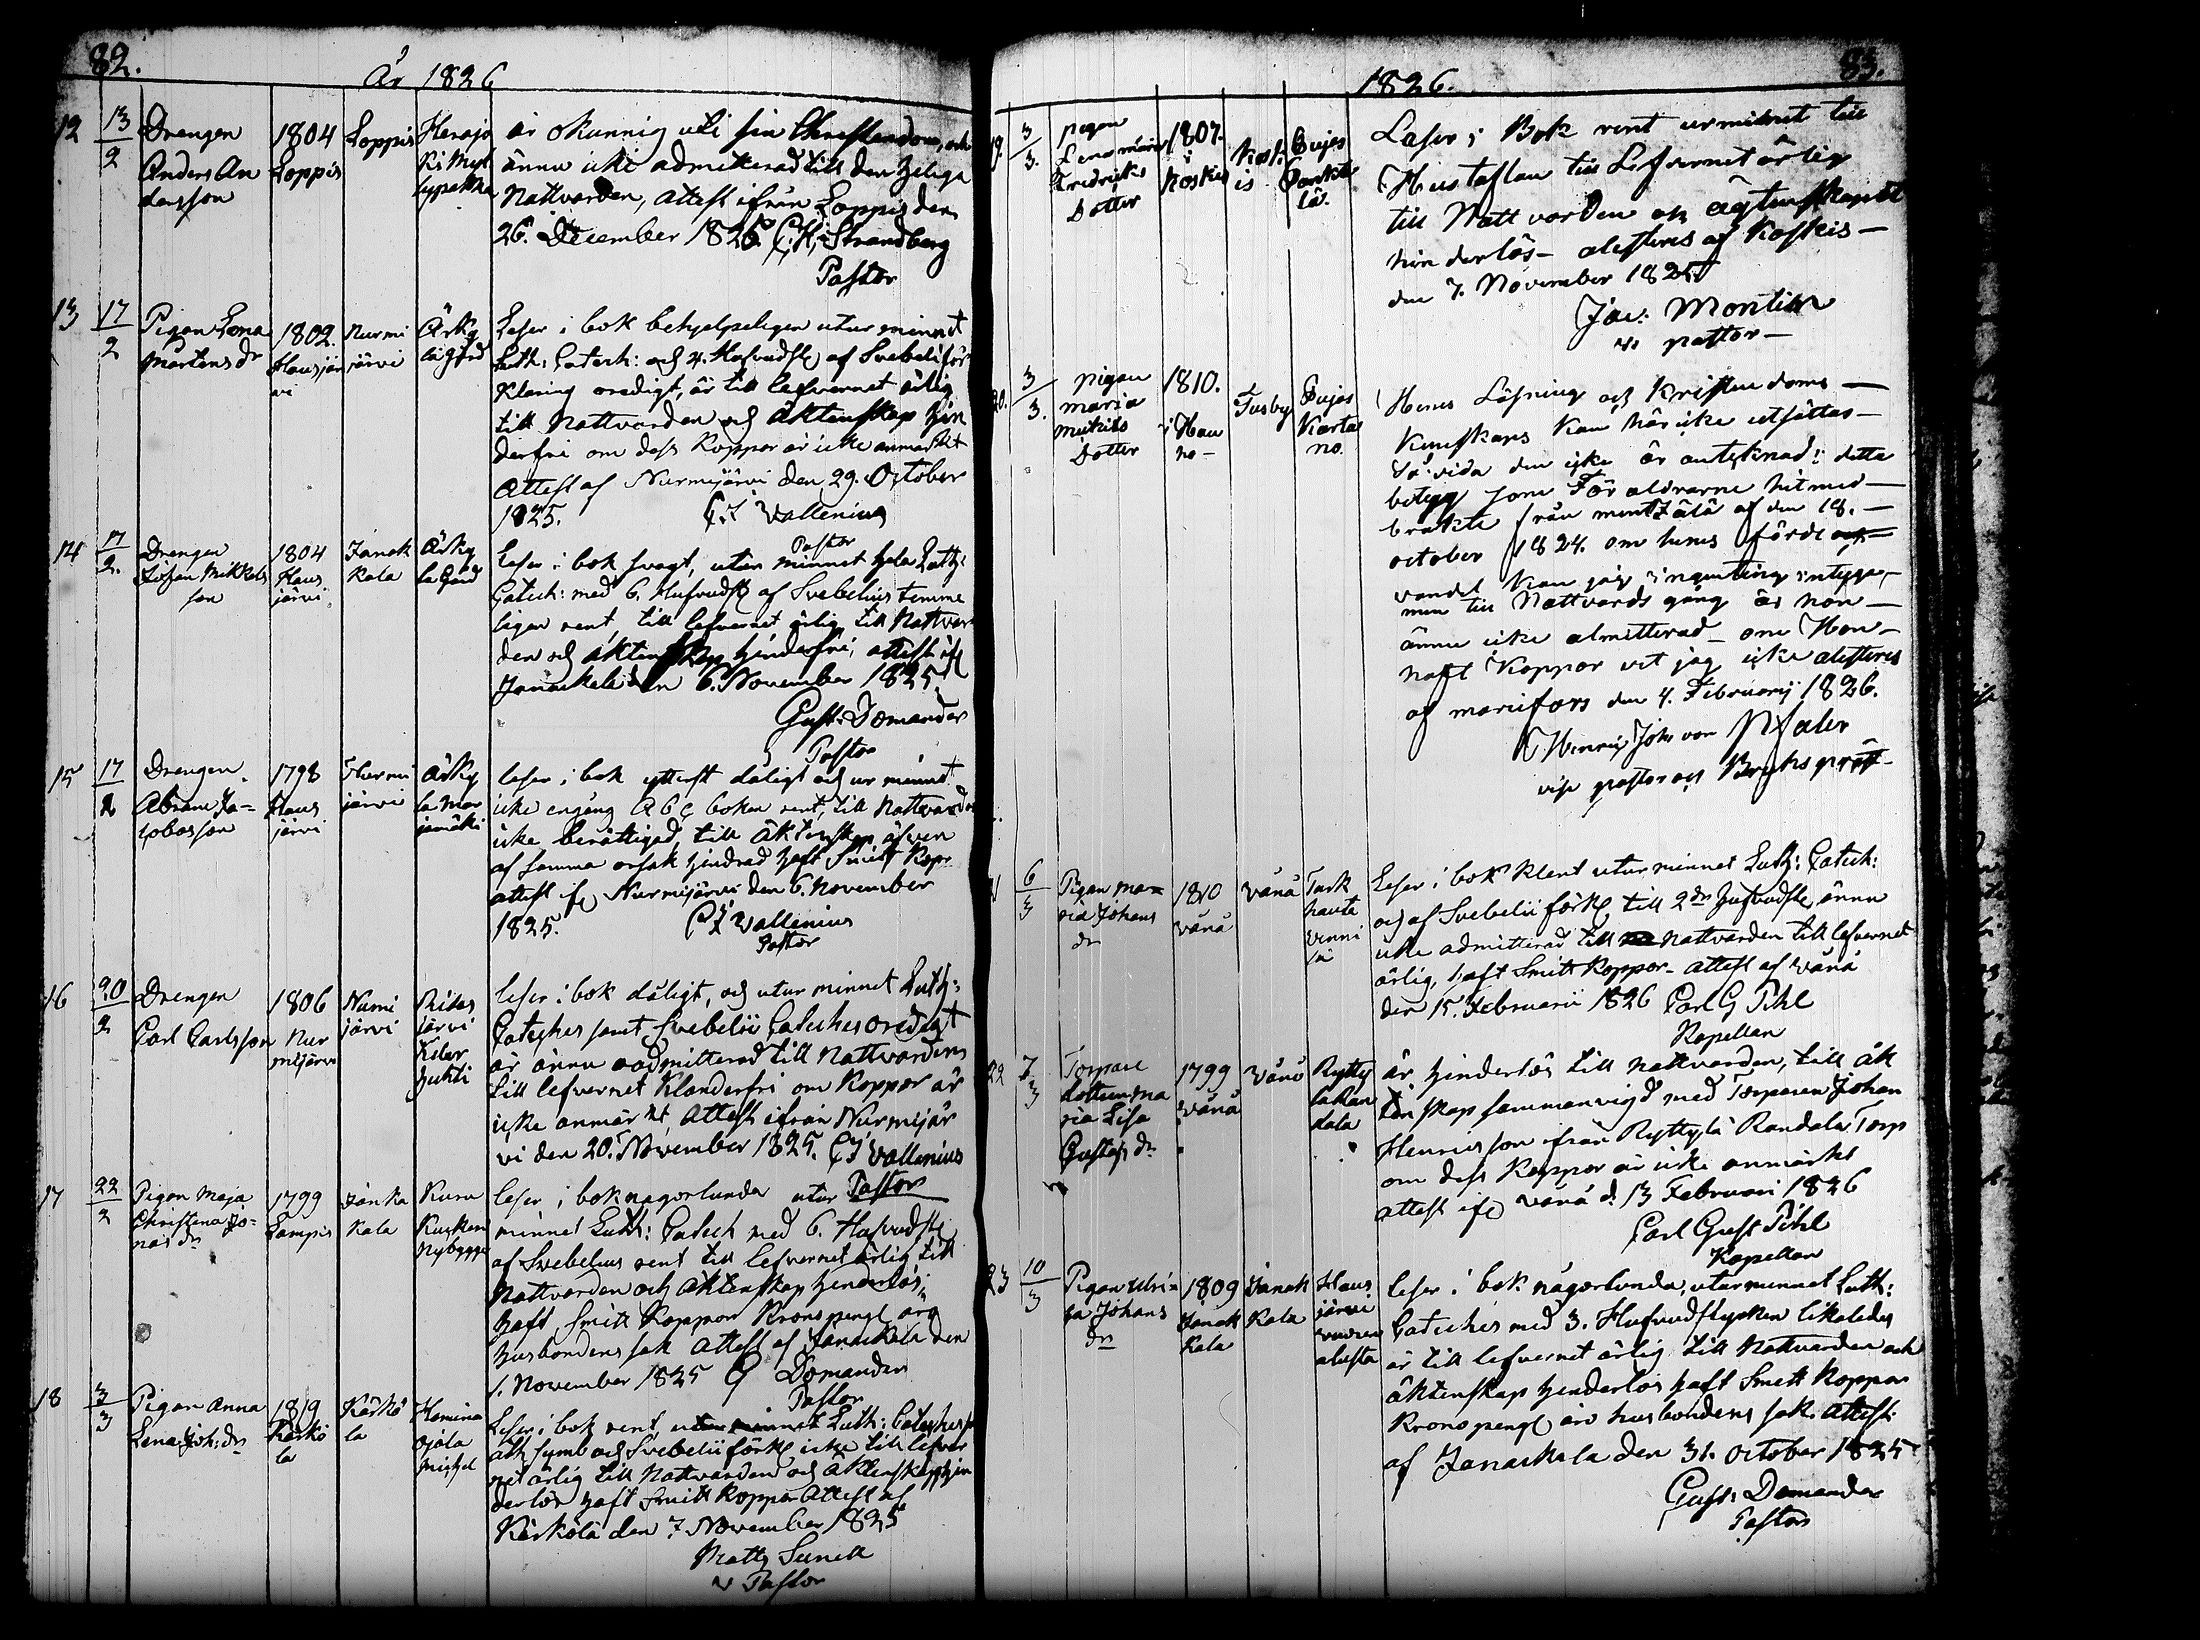 82.
År 1826
12 13/2 Drengen Anders An dersson
1804 Loppis
Loppis
Herajo
är okunnig uti sin Christendom, och
ännu icke admitterad till den heliga
Nattvarden, attest ifrån Loppis den
26. December 1825. C. H. Strandberg
Pastor
13 17/2 Pigan Lena Mårtens dr
1802. Hausjär vi
Nurmi järvi
Ärky lä gård
Leser i bok behjelpeligen utur minnet
Luth: Catech: och 4. Hufvudst af Svebelii för
klaring oredigt, är till lefvernet ärlig
till Nattvarden och äktenskap hin
derfri om dess Koppor är icke anmärkt
Attest af Nurmijärvi den 29. October
1825. C. J. Vallenius
Pastor
14 17/2. Drengen Johan Mikkels son
1804 Haus järvi
Janak kala
Ärky lä Gård
Leser i bok svagt, utur minnet hela Luth:
Catech: med 6. Hufvudst af Svebelius temme
ligen rent, till lefvernet ärlig till Nattvar
den och äktenskap hinderfri, attest if
Janackala den 6. November 1825.
Gust: Domander
Pastor
15 17/2 Drengen Abram Ja= cobsson
1798 Haus järvi
Nurmi järvi
Ärky lä Mar jamäki
leser i bok ytterst dåligt och ur minnet
icke engång A b c boken rent, till Nattvarden
icke berättigad, till äktenskap äfven
af samma orsak hindrad haft Smitt Kopr
attest if Nurmijärvi den 6. November
1825. C J Vallenius
Pastor
16 20/2 Drengen Carl Carlsson
1806 Nur mijärvi
Nurmi järvi
Ridas järvi Keler huhti
leser i bok dåligt, och utur minnet Luth:
Cateches samt Svebelii Catuches oredigt
är ännu oadmitterad till Nattvarden
till lefvernet Klanderfri om Koppor är
icke anmärkt, Attest ifrån Nurmijär
vi den 20. November 1825. C J Vallenius
Pastor
17 22/2 Pigan Maja Christina Jo= nas dr
1799 Lampis
Janka kala
Kuru Kusken Nybygge
leser i bok någorlunda utur
minnet Luth: Catech med 6. Hufvudst
af Svebelius rent till lefvernet ärlig till
Nattvarden och äktenskap hinderlös,
haft Smitt Koppor Kronopeng: äro
husbondens sak Attest af Janackala den
1. November 1825 G Domander
Pastor
18 3/3 Pigan Anna Lena Joh: dr
1819 Kärkö la
Kärkö la
Homina ojala Michel
Leser i bok rent, utur minnet Luth: Cateches
ath symb och Svebelii förkl icke till lefver
net ärlig till Nattvarden och äktenskap hin
derlös haft Smitt Koppor Attest af
Kärkölä den 7 November 1825
Matth Sunell
v Pastor
1826.
83.
19. 3/3. pigan Lena maria Fredricks Dotter
1807. i Koskis
Kosk is
Pujos
Läser i Bok rent urminnet till
Hustaflan till Lefvernet ärlig
till Nattvarden och ägtenskapet
hinderlös – atesteras af Koskis –
den 7. November 1825
Jac: Montin
v. pastor –
20. 3/3. pigan maria mickils Dotter
1810. i Hau ho –
Tusby
Pujos Karta no.
Henes Läsning och Kristendoms –
Kunskaps kan här icke utsättas –
så vida den icke är antecknad i detta
betyg som Föräldrarne hitmed –
brackte från mentzälä af den 18. –
october 1824. om henes förde och –
vandel kan jag ingenting intyga, –
men till Nattvards gång är hon –
ännu icke almitterad – om Hon –
haft Koppor vet jag icke atesteras
af mariefors den 4. Februarij 1826.
Henric Joh: von Pfaler
vise pastor och Bruks präst –
21 6/3 Pigan Ma= ria Johans dr
1810 Vånå
Vånå
Turk hauta
Leser i bok klent utur minnet Luth: Catech:
och af Svebelii förkl till 2dra hufvudst ännu
icke admitterad till Nattvarden till lefvernet
ärlig, haft Smitt Koppor – attest af Vånå
den 15. Februarii 1826 Carl G Pihl
Kapellan
22 7/3 Torpare dottern Ma ria Lisa Gustafs dr
1799 Vånå
Vånå
Rytty lä Ran dala
är hinderlös till nattvarden, till äk
tenskap sammanvigd med Torparen Johan
Henricsson ifrån Ryttylä Randala Torp
om dess Koppor är icke anmärkt
attest if Vånå d. 13 Februari 1826
Carl Gust Pihl
Kapellan
23 10/3 Pigan Ulri= ca Johans dr
1809 Janak kala
Janak kala
Haus järvi vuoren alusta
leser i bok någorlunda, utur minnet Luth:
Catechis med 3. Hufvudstycken likaledes
är till lefvernet ärlig till Nattvarden och
äktenskap hinderlös haft Smitt Koppor
Kronopeng äro husbondens sak. Attest
af Janackala den 31. October 1825
Gust: Domander
Pastor